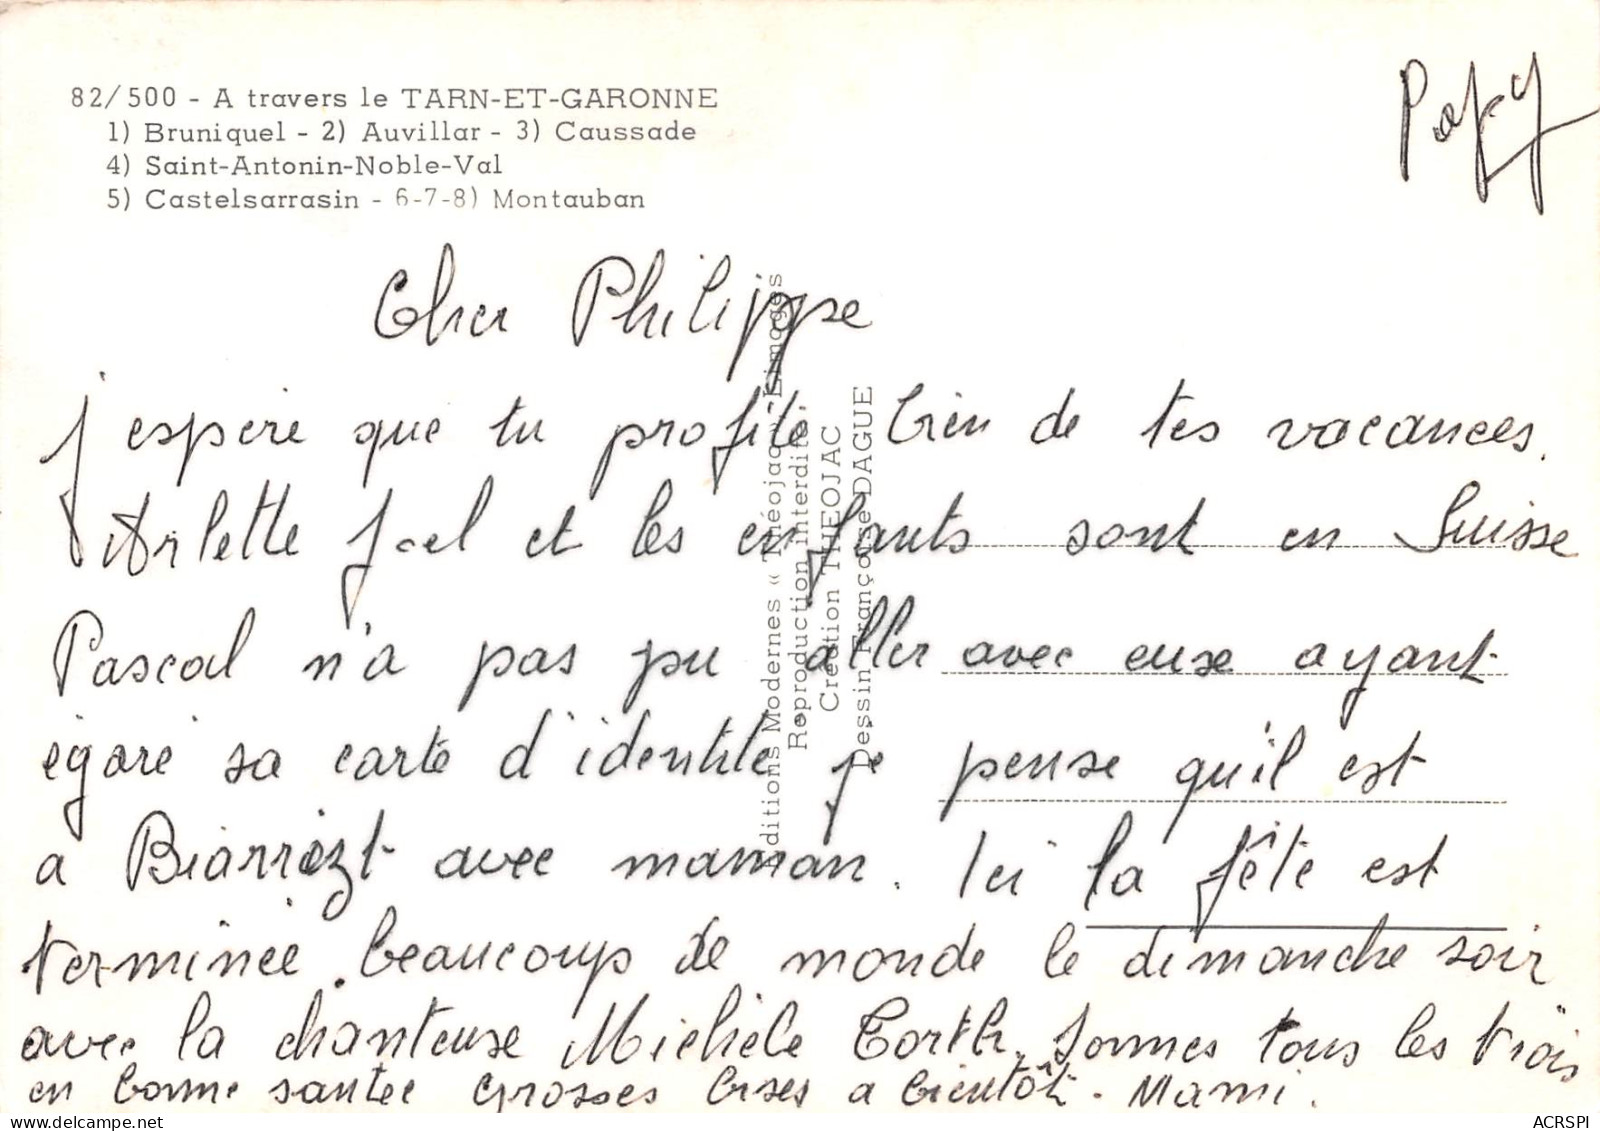 82/500 - A travers le TARN-ET-GARONNE
1) Bruniquel - 2) Auvillar - 3) Caussade
4) Saint-Antonin-Noble-Val
5) Castelsarrasin - 6-7-8) Montauban
Papy
Cher Philippe
j'espère que tu profite bien de tes vacances.
Arlette Joel et les enfants sont en Suisse
Pascal n'a pas pu aller avec euxe ayant
égaré sa carte d'identité je pense qu'il est
a Biarrizt avec maman. Ici la fête est
terminée. beaucoup de monde le dimanche soir
avec la chanteuse Michèle Torth. sommes tous les trois
en bonne santée grosses bises a bientôt. Mami.
Editions Modernes « Théojac » Limoges
Reproduction interdite
Création THEOJAC
Dessin Françoise DAGUE
www.delcampe.net
ACRSPI